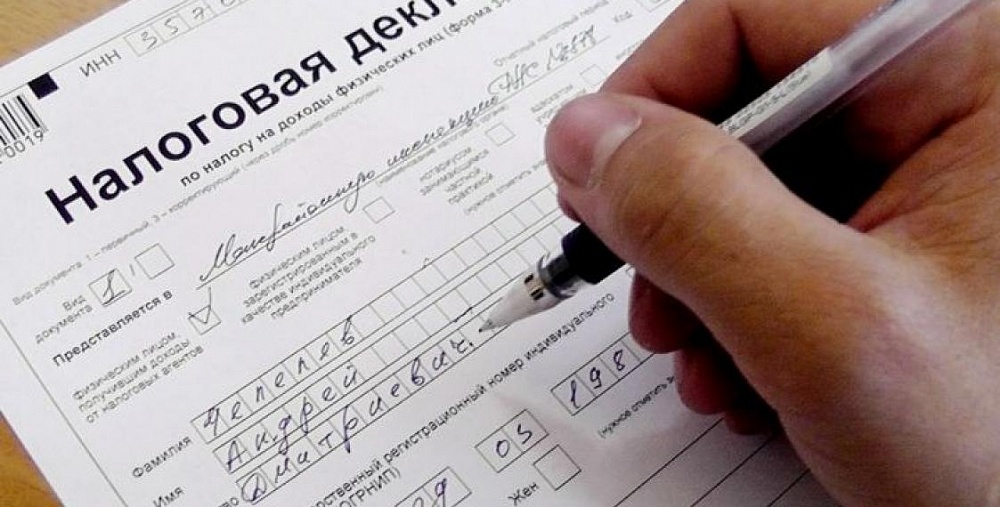 ИНН 3570
0019
Налоговая декл
по налогу на доходы физических лиц (форма 3-
Отчетный налоговый период
Код
Вид документа: 1 – первичный, 3 – корректирующий (через дробь номер корректировки)
Вид документа 1 /
Представляется в Межрайонную инспекцию ФНС №
(наименование налогового органа)
физическим лицом, получившим доходы от налоговых агентов
физическим лицом, зарегистрированным в качестве индивидуального предпринимателя
нотариусом занимающимся частной практикой
адвокатом
(нужное отметить
Фамилия Чепелев
Имя Андрей
во Дмитриевич
арственный регистрационный номер индивидуального
ОГРНИП)
29 05 198
Жен
(нужное отметить з